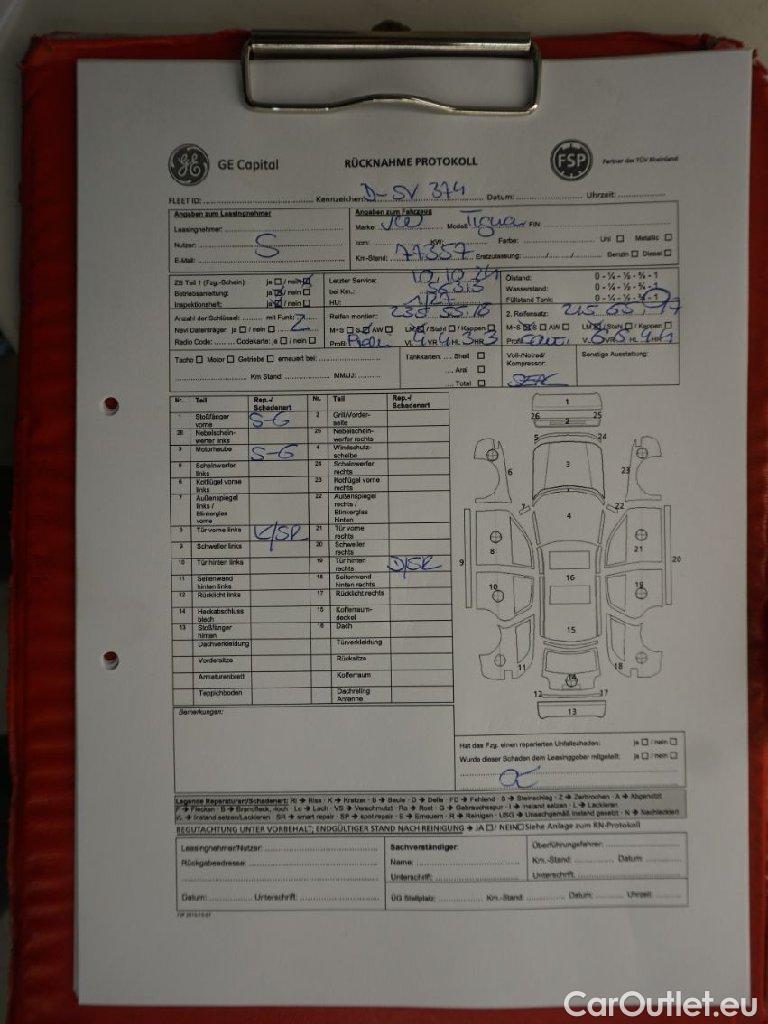 GE Capital
RÜCKNAHME PROTOKOLL
FSP
Partner des TÜV Rheinland
FLEET ID: Kennzeichen: D-SV 374 Datum: Uhrzeit:
Angaben zum Leasingnehmer
Leasingnehmer:
Nutzer: S
E-Mail:
Angaben zum Fahrzeug
Marke VW Modell FIN:
KW: Farbe: Uni Metallic
Km-Stand: 77357 Erstzulassung: Benzin Diesel
ZB Teil 1 (Fzg.-Schein): ja / nein
Betriebsanleitung: ja / nein
Inspektionsheft: ja / nein
Letzter Service:
bei Km.:
HU:
Ölstand: 0 - ¼ - ½ - ¾ - 1
Wasserstand: 0 - ¼ - ½ - ¾ - 1
Füllstand Tank: 0 - ¼ - ½ - ¾ - 1
Anzahl der Schlüssel: mit Funk: 2
Navi Datenträger: ja / nein
Radio Code: Codekarte: ja / nein
Reifen montiert: 235 55 18
M+S AW LM / Stahl / Kappen
Profil: VL 4 VR 4 HL 3 HR 3
2. Reifensatz: 215 65 17
M+S AW LM / Stahl / Kappen
Tacho Motor Getriebe erneuert bei:
Km Stand: MM/JJ:
Tankkarten: Shell
Aral
Total
Voll-/Notrad/
Kompressor:
Sonstige Ausstattung:
Nr. Teil Rep.-/ Schadenart Nr. Teil Rep.-/ Schadenart
1 Stoßfänger vorne S-G 2 Grill/Vorderseite
26 Nebelscheinwerfer links 25 Nebelscheinwerfer rechts
3 Motorhaube S-G 4 Windschutzscheibe
5 Scheinwerfer links 24 Scheinwerfer rechts
6 Kotflügel vorne links 23 Kotflügel vorne rechts
7 Außenspiegel links / Blinkerglas vorne 22 Außenspiegel rechts / Blinkerglas hinten
8 Tür vorne links K/SP 21 Tür vorne rechts
9 Schweller links 20 Schweller rechts
10 Tür hinten links 19 Tür hinten rechts D/SR
11 Seitenwand hinten links 18 Seitenwand hinten rechts
12 Rücklicht links 17 Rücklicht rechts
14 Heckabschlussblech 15 Kofferraumdeckel
13 Stoßfänger hinten 16 Dach
Dachverkleidung Türverkleidung
Vordersitze Rücksitze
Armaturenbrett Kofferraum
Teppichboden Dachreling Antenne
1
26 25
2
5 24
3
6 23
7 22
4
8 21
9 20
16
10 19
15
11 18
14
12 17
13
Bemerkungen:
Hat das Fzg. einen reparierten Unfallschaden: ja / nein
Wurde dieser Schaden dem Leasinggeber mitgeteilt: ja / nein
Legende Reparaturen/Schadenart: RI → Riss · K → Kratzer · B → Beule · D → Delle · FE → Fehlend · S → Steinschlag · Z → Zerbrochen · A → Abgenutzt
BEGUTACHTUNG UNTER VORBEHALT; ENDGÜLTIGER STAND NACH REINIGUNG → JA / NEIN Siehe Anlage zum RN-Protokoll
Leasingnehmer/Nutzer:
Rückgabeadresse:
Datum: Unterschrift:
Sachverständiger:
Name:
Unterschrift:
Überführungsfahrer:
Km.-Stand: Datum
Unterschrift:
ÜG Stellplatz: Km.-Stand Datum: Uhrzeit
CarOutlet.eu